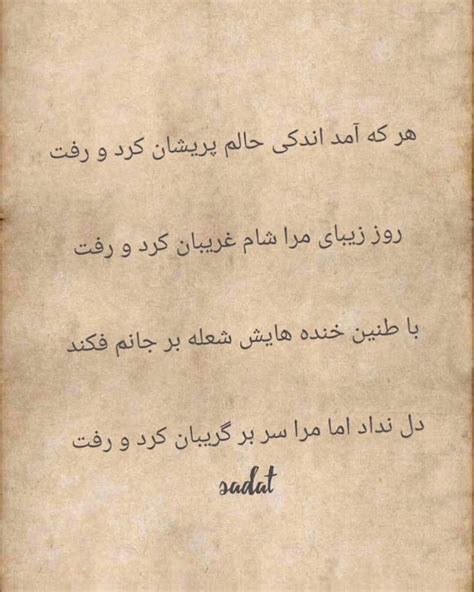 هر که آمد اندکی حالم پریشان کرد و رفت
روز زیبای مرا شام غریبان کرد و رفت
با طنین خنده هایش شعله بر جانم فکند
دل نداد اما مرا سر بر گریبان کرد و رفت
sadat